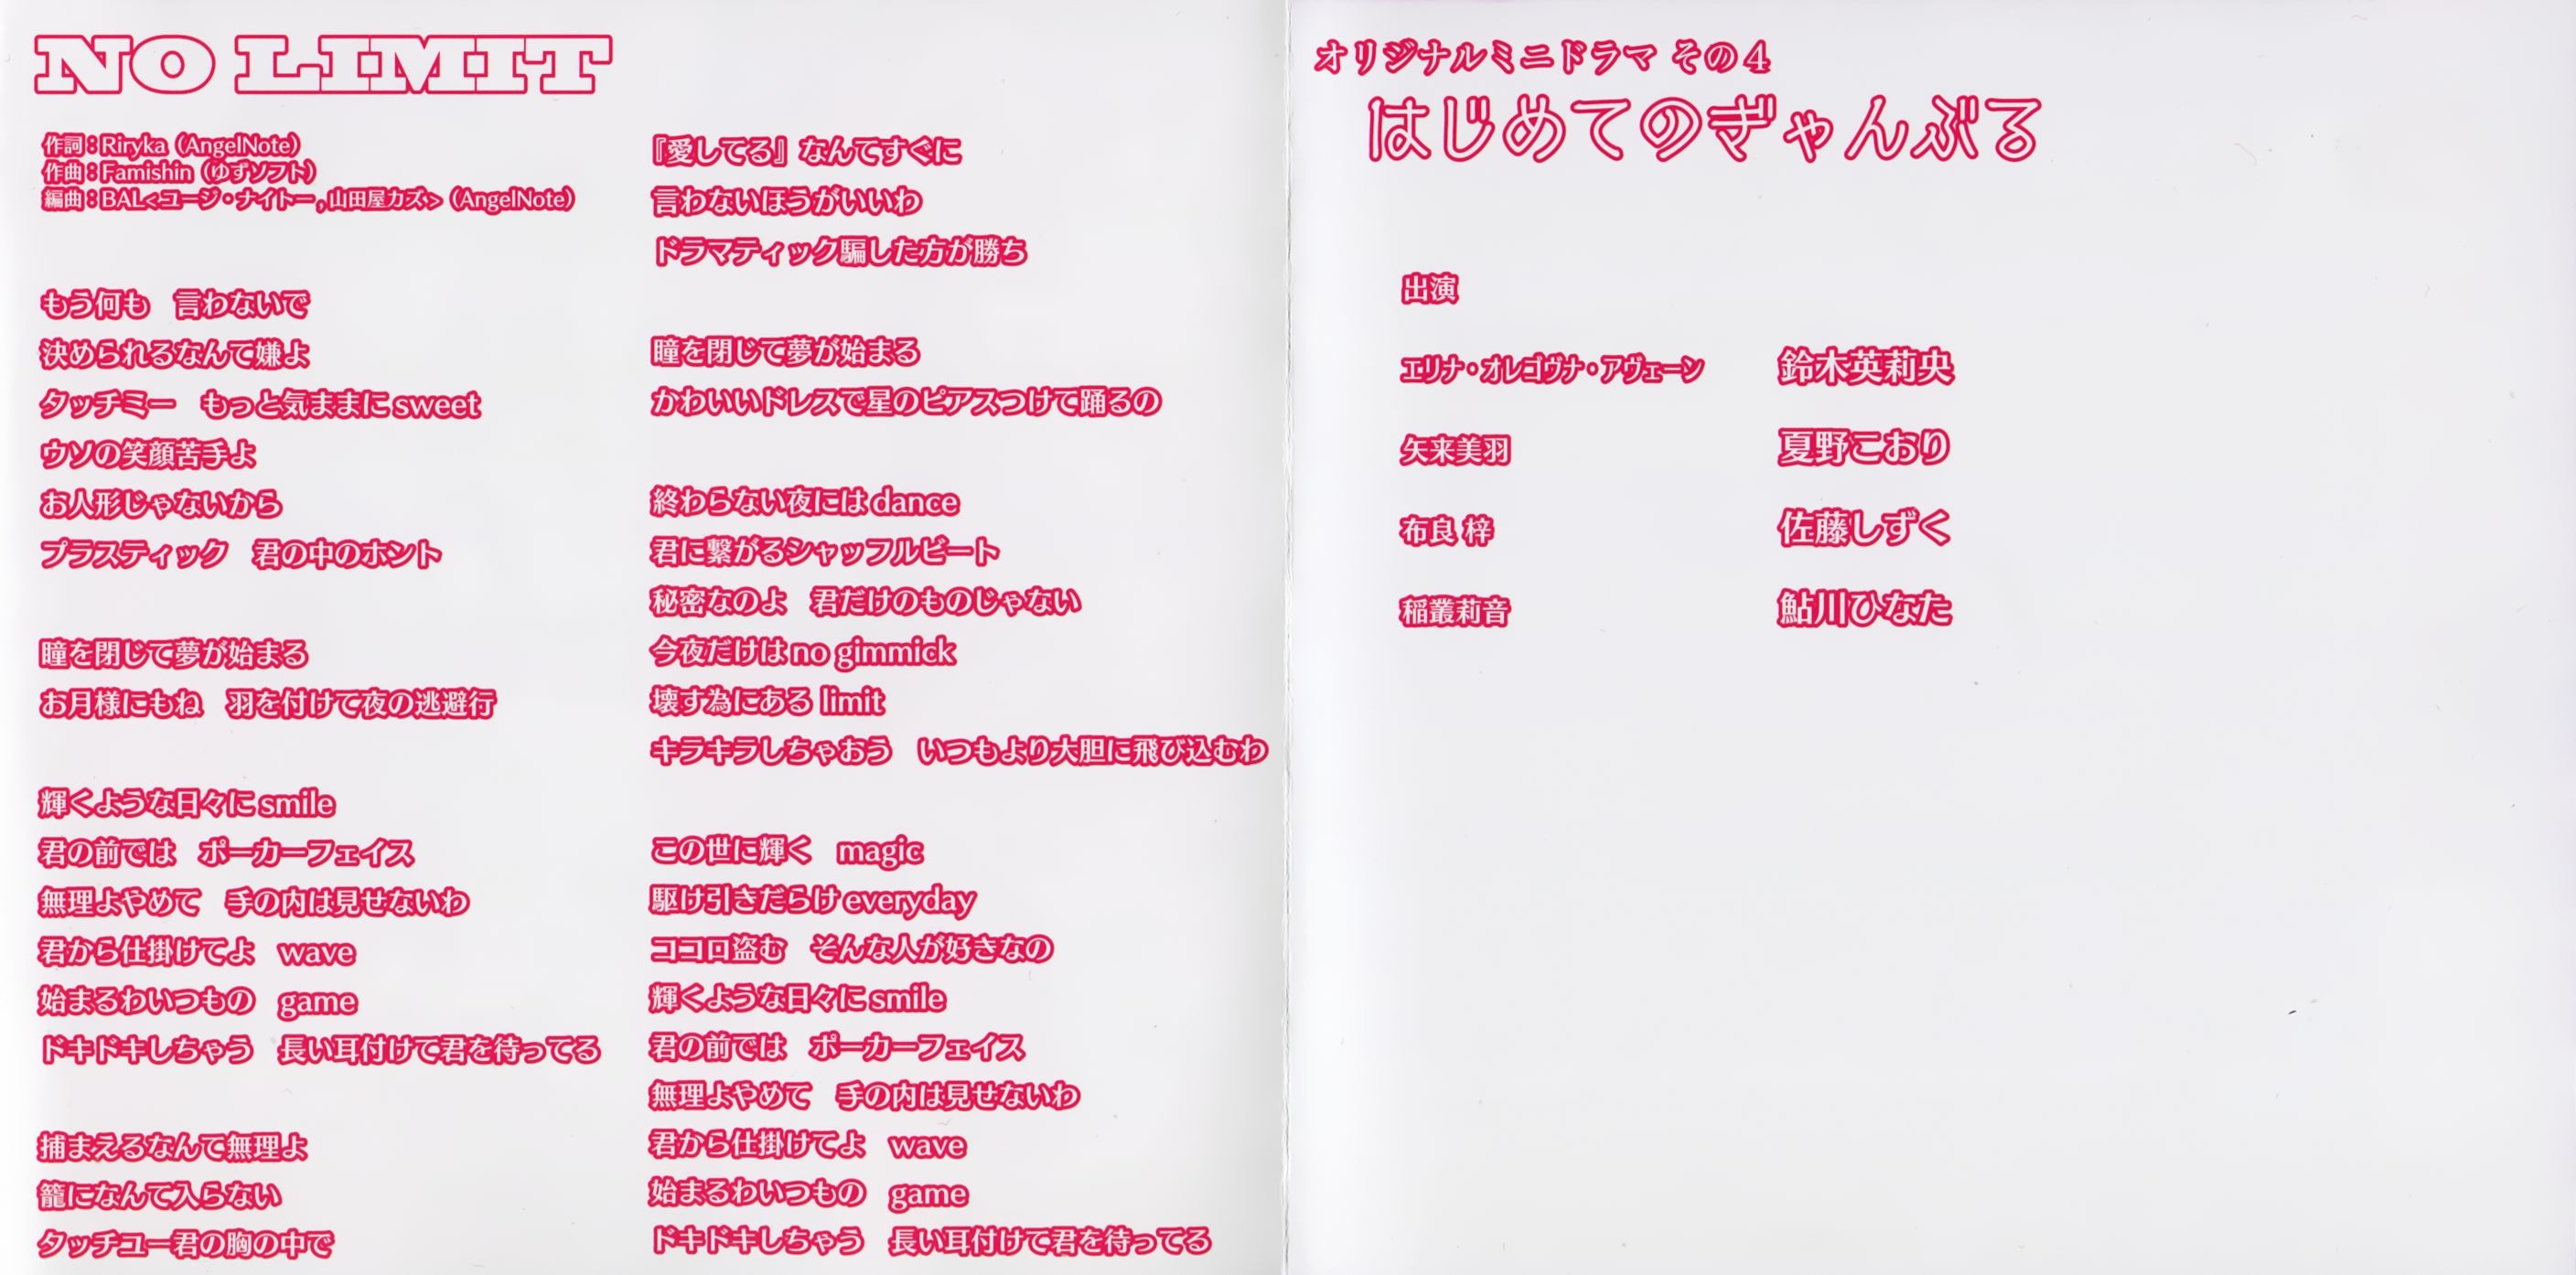 NO LIMIT
作詞：Riryka（AngelNote）
作曲：Famishin（ゆずソフト）
編曲：BAL<ユージ・ナイトー,山田屋カズ>（AngelNote）
もう何も　言わないで
決められるなんて嫌よ
タッチミー　もっと気ままにsweet
ウソの笑顔苦手よ
お人形じゃないから
プラスティック　君の中のホント
瞳を閉じて夢が始まる
お月様にもね　羽を付けて夜の逃避行
輝くような日々にsmile
君の前では　ポーカーフェイス
無理よやめて　手の内は見せないわ
君から仕掛けてよ　wave
始まるわいつもの　game
ドキドキしちゃう　長い耳付けて君を待ってる
捕まえるなんて無理よ
籠になんて入らない
タッチユー君の胸の中で
『愛してる』なんてすぐに
言わないほうがいいわ
ドラマティック騙した方が勝ち
瞳を閉じて夢が始まる
かわいいドレスで星のピアスつけて踊るの
終わらない夜にはdance
君に繋がるシャッフルビート
秘密なのよ　君だけのものじゃない
今夜だけはno gimmick
壊す為にある limit
キラキラしちゃおう　いつもより大胆に飛び込むわ
この世に輝く　magic
駆け引きだらけeveryday
ココロ盗む　そんな人が好きなの
輝くような日々にsmile
君の前では　ポーカーフェイス
無理よやめて　手の内は見せないわ
君から仕掛けてよ　wave
始まるわいつもの　game
ドキドキしちゃう　長い耳付けて君を待ってる
オリジナルミニドラマ その4
はじめてのぎゃんぶる
出演
エリナ・オレゴヴナ・アヴェーン　鈴木英莉央
矢来美羽　夏野こおり
布良 梓　佐藤しずく
稲叢莉音　鮎川ひなた